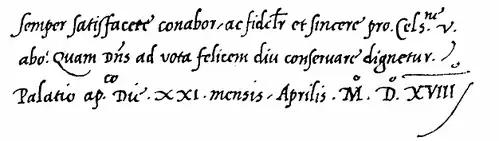 semper satisfacere conabor, ac fidelr et sincere pro. Cels.ne v.
abo: Quam Dñs ad vota felicem diu conservare dignetur.
Palatio ap.co Die. XXI. mensis. Aprilis. M.o D.o XVIII